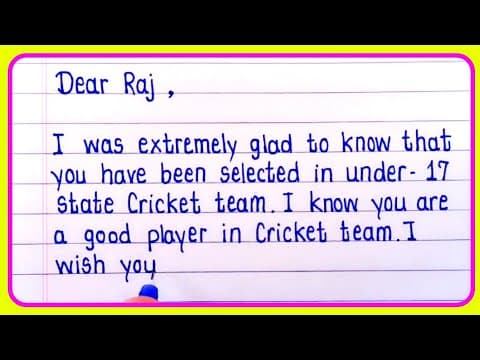 Dear Raj ,
I was extremely glad to know that
you have been selected in under- 17
state Cricket team. I know you are
a good player in Cricket team. I
wish you